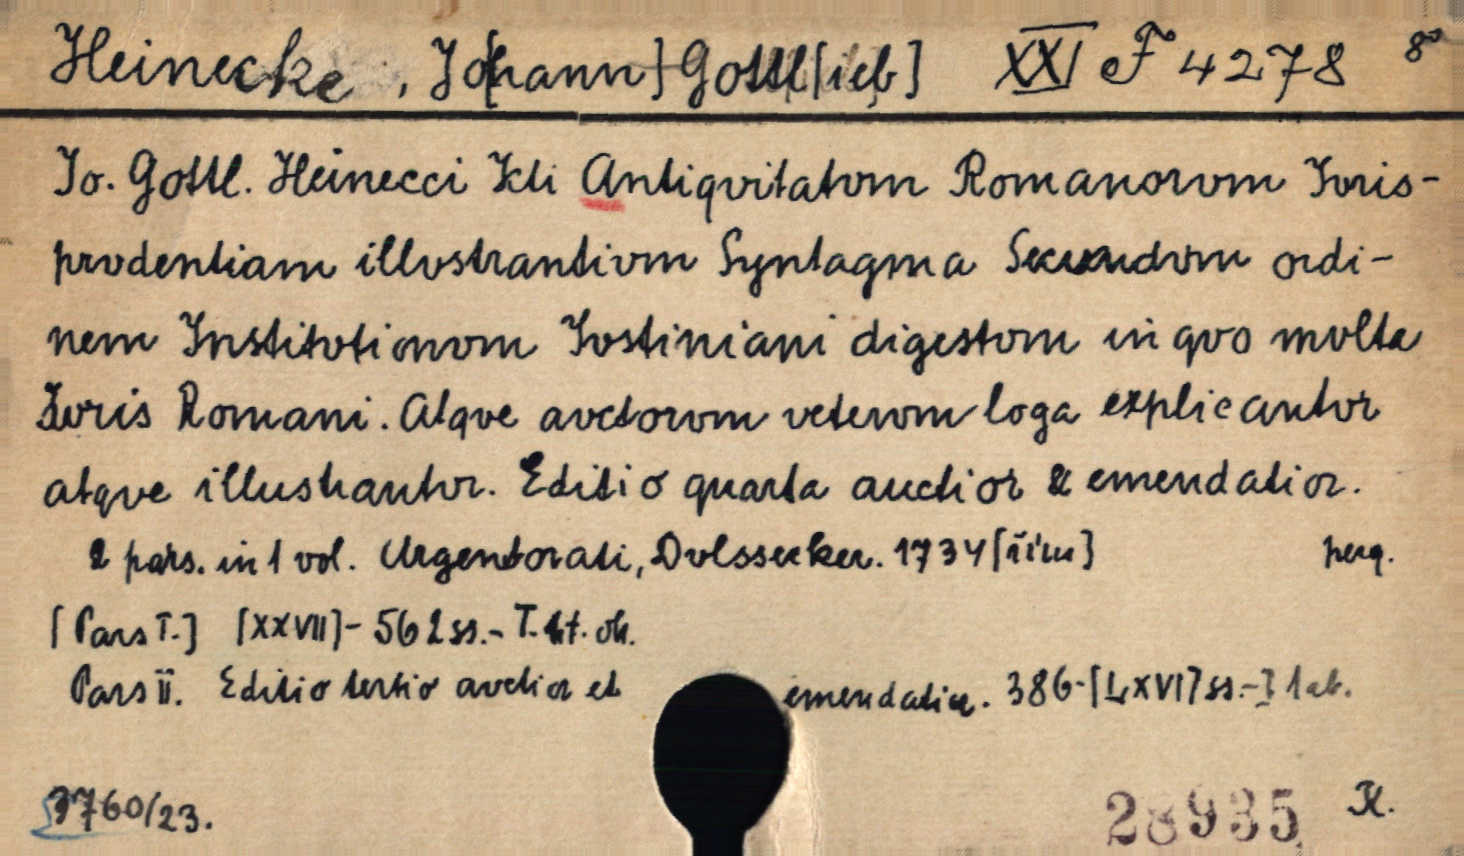 Heinecke, Jo[hann] Gottl[ieb] XXI F 4278 8°
Jo. Gottl. Heinecci Icti Antiqvitatvm Romanorvm Ivris-
prvdentiam illvstrantivm Syntagma Secundvm ordi-
nem Institvtionvm Ivstiniani digestvm in qvo mvlta
Ivris Romani. Atqve avctorvm vetervm loga explicantvr
atqve illustrantvr. Editio quarta auctior & emendatior.
2 pars. in 1 vol. Argentorati, Dvlssecker. 1734 perq.
[Pars I.] [XXVII]- 562 ss.-
Pars II. Editio tertio avctior et emendatior. 386-[LXVI] ss.-
3760/23.
28935 K.